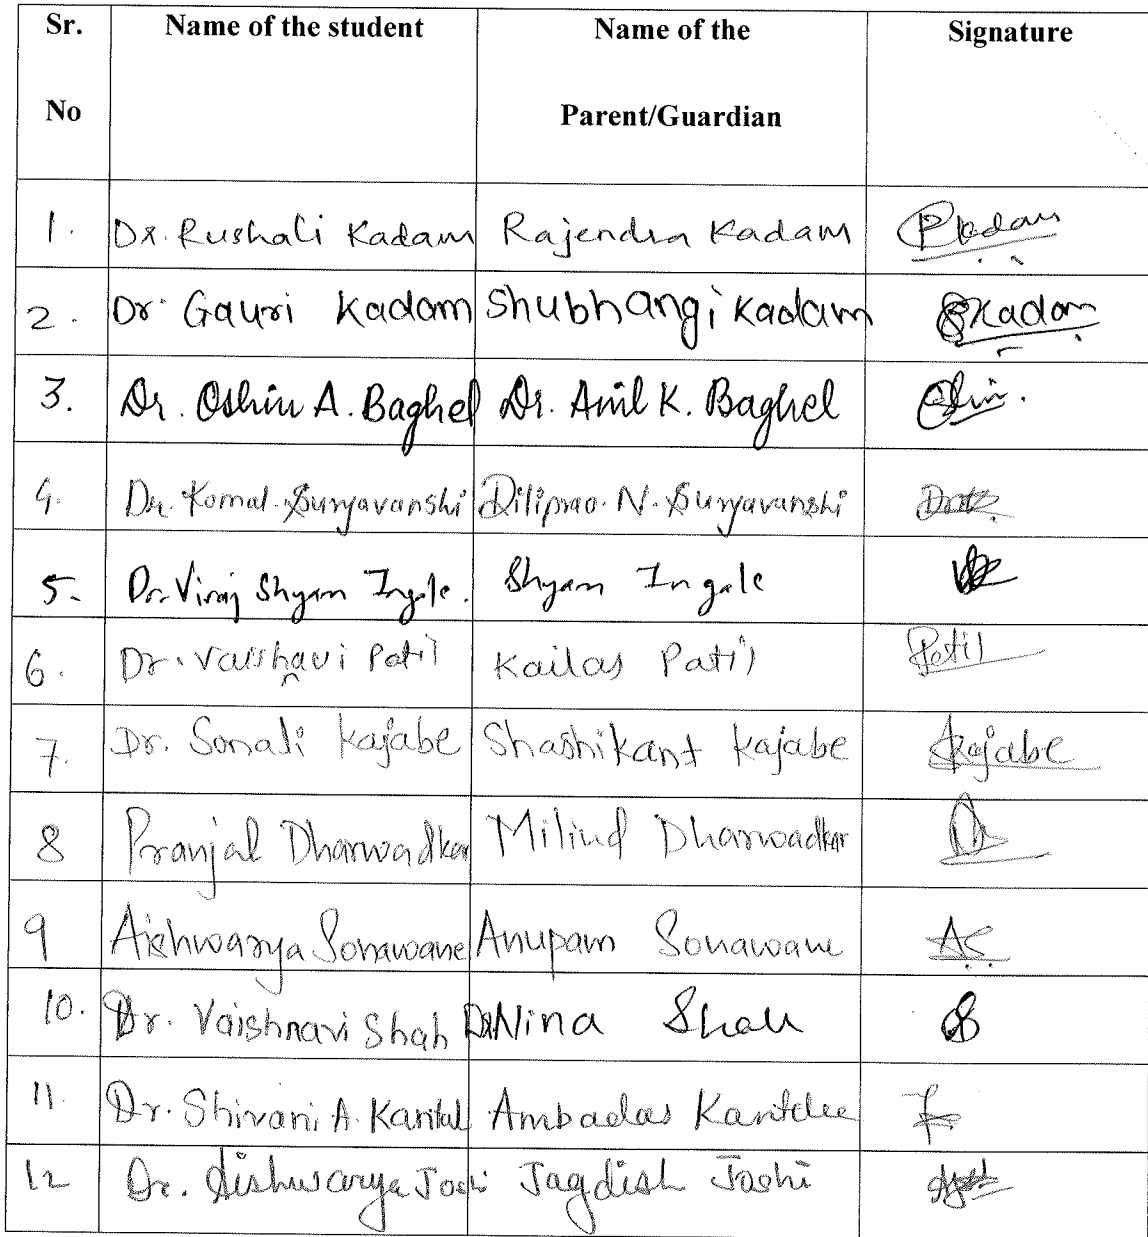 Sr. No Name of the student Name of the Parent/Guardian Signature
1. Dr. Rushali Kadam Rajendra Kadam
2. Dr. Gauri Kadam Shubhangi Kadam SKadam
3. Dr. Oshin A. Baghel Dr. Anil K. Baghel
4. Dr. Komal. Suryavanshi Diliprao. N. Suryavanshi
5. Dr. Viraj Shyam Ingole. Shyam Ingole
6. Dr. Vaishavi Patil Kailas Patil Patil
7. Dr. Sonali Kajabe Shashikant Kajabe Kajabe
8 Pranjal Dharwadkar Milind Dharwadkar
9 Aishwarya Sonawane Anupam Sonawane AS
10. Dr. Vaishnavi Shah Dr. Nina Shah
11. Dr. Shivani A. Ambadas
12 Dr. Aishwarya Joshi Jagdish Joshi